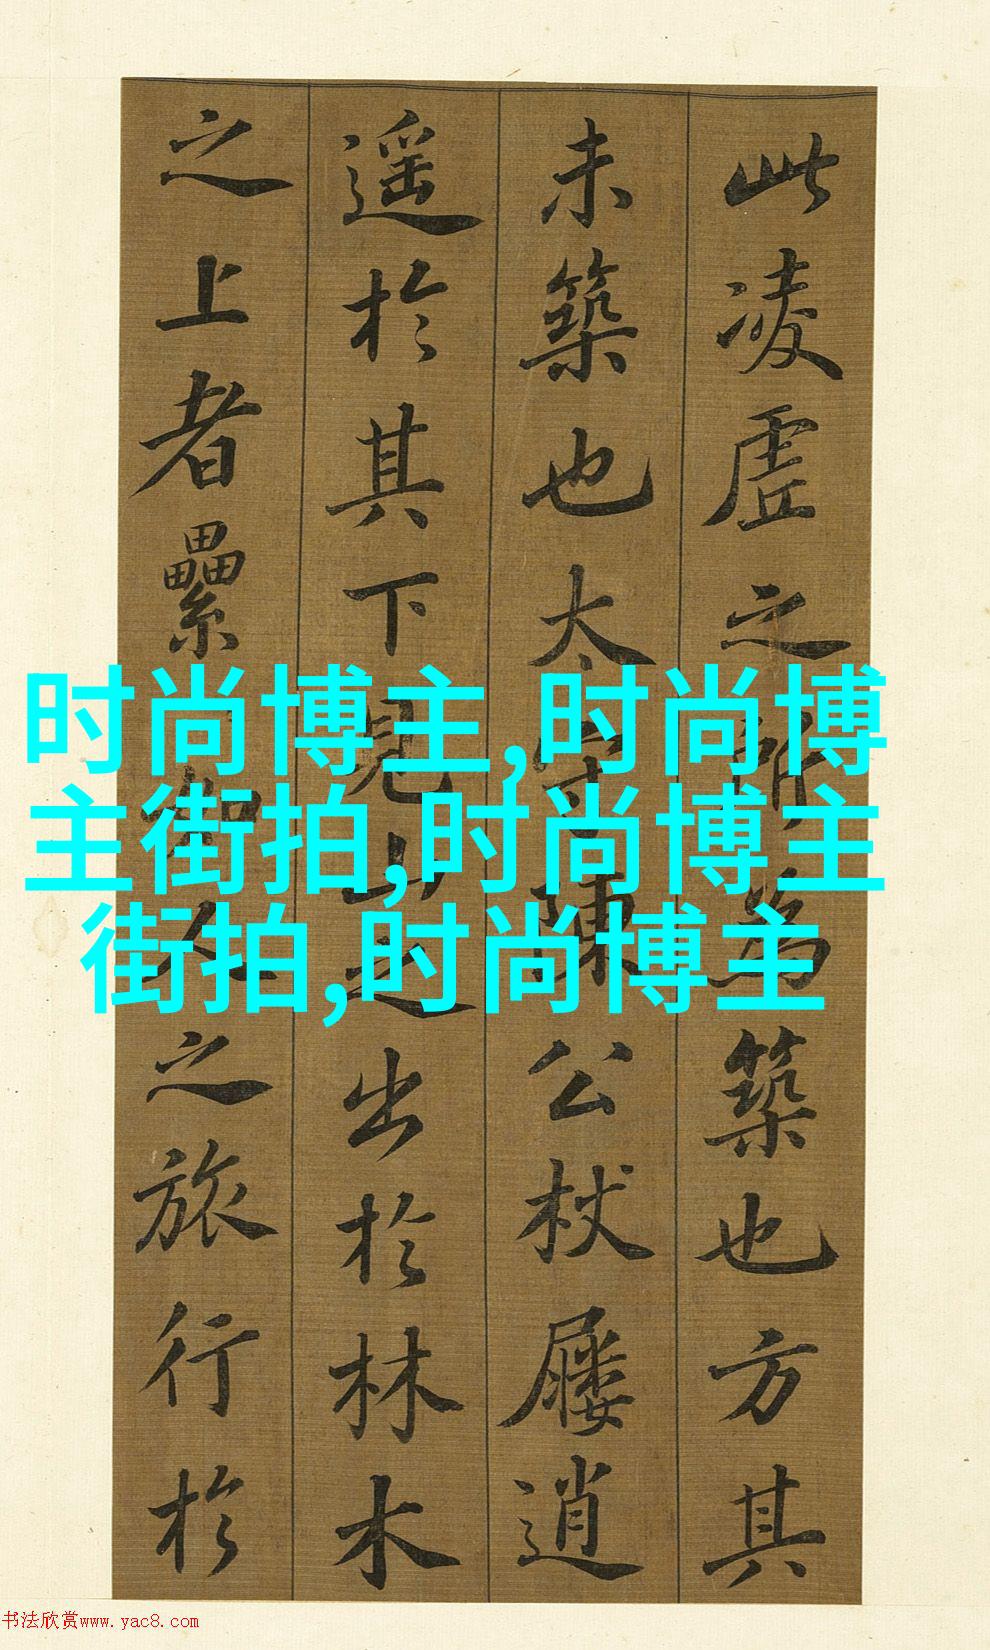 此凌虛之所為築也方其
未築也太守陳公杖屨逍
遥於其下見山之出於林木
之上者纍如人之旅行於
时尚博主,时尚博
主街拍,时尚博主
街拍,时尚博主
书法欣赏www.yac8.com